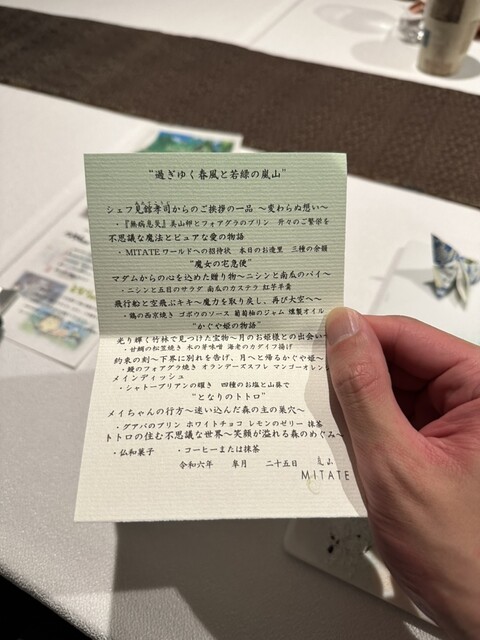 “過ぎゆく春風と若緑の嵐山”
シェフ見舘孝司からのご挨拶の一品 〜変わらぬ想い〜
・『無病息災』美山卵とフォアグラのプリン 益々のご繁栄を
不思議な魔法とピュアな愛の物語
・MITATEワールドへの招待状 本日のお造里 三種の余韻
“魔女の宅急便”
マダムからの心を込めた贈り物〜ニシンと南瓜のパイ〜
・ニシンと五目のサラダ 南瓜のカステラ 紅芋羊羹
飛行船と空飛ぶキキ〜魔力を取り戻し、再び大空へ〜
・鶏の西京焼き ゴボウのソース 葡萄柚のジャム 燻製オイル
“かぐや姫の物語”
光り輝く竹林で見つけた宝物〜月のお姫様との出会い
・甘鯛の松笠焼き 木の芽味噌 海老のカダイフ揚げ
約束の刻〜下界に別れを告げ、月へと帰るかぐや姫〜
・鰻のフォアグラ焼き オランデーズスフレ マンゴーオレン
メインディッシュ
・シャトーブリアンの輝き 四種のお塩と山葵で
“となりのトトロ”
メイちゃんの行方〜迷い込んだ森の主の巣穴〜
・グアバのプリン ホワイトチョコ レモンのゼリー 抹茶
トトロの住む不思議な世界〜笑顔が溢れる森のめぐみ〜
・仏和菓子 ・コーヒーまたは抹茶
令和六年 皐月 二十五日
MITATE